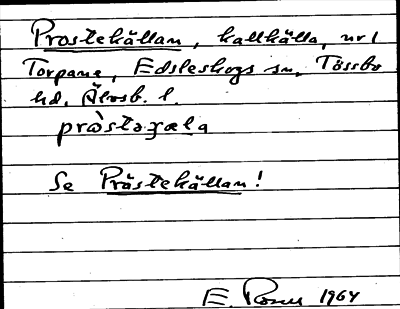 Prostekällan, kallkälla, nr 1
Torpane, Edsleskogs sn, Tössbo
hd, Älvsb. l.
pròstəɟæla
Se Prästekällan!
E. Rosu 1964